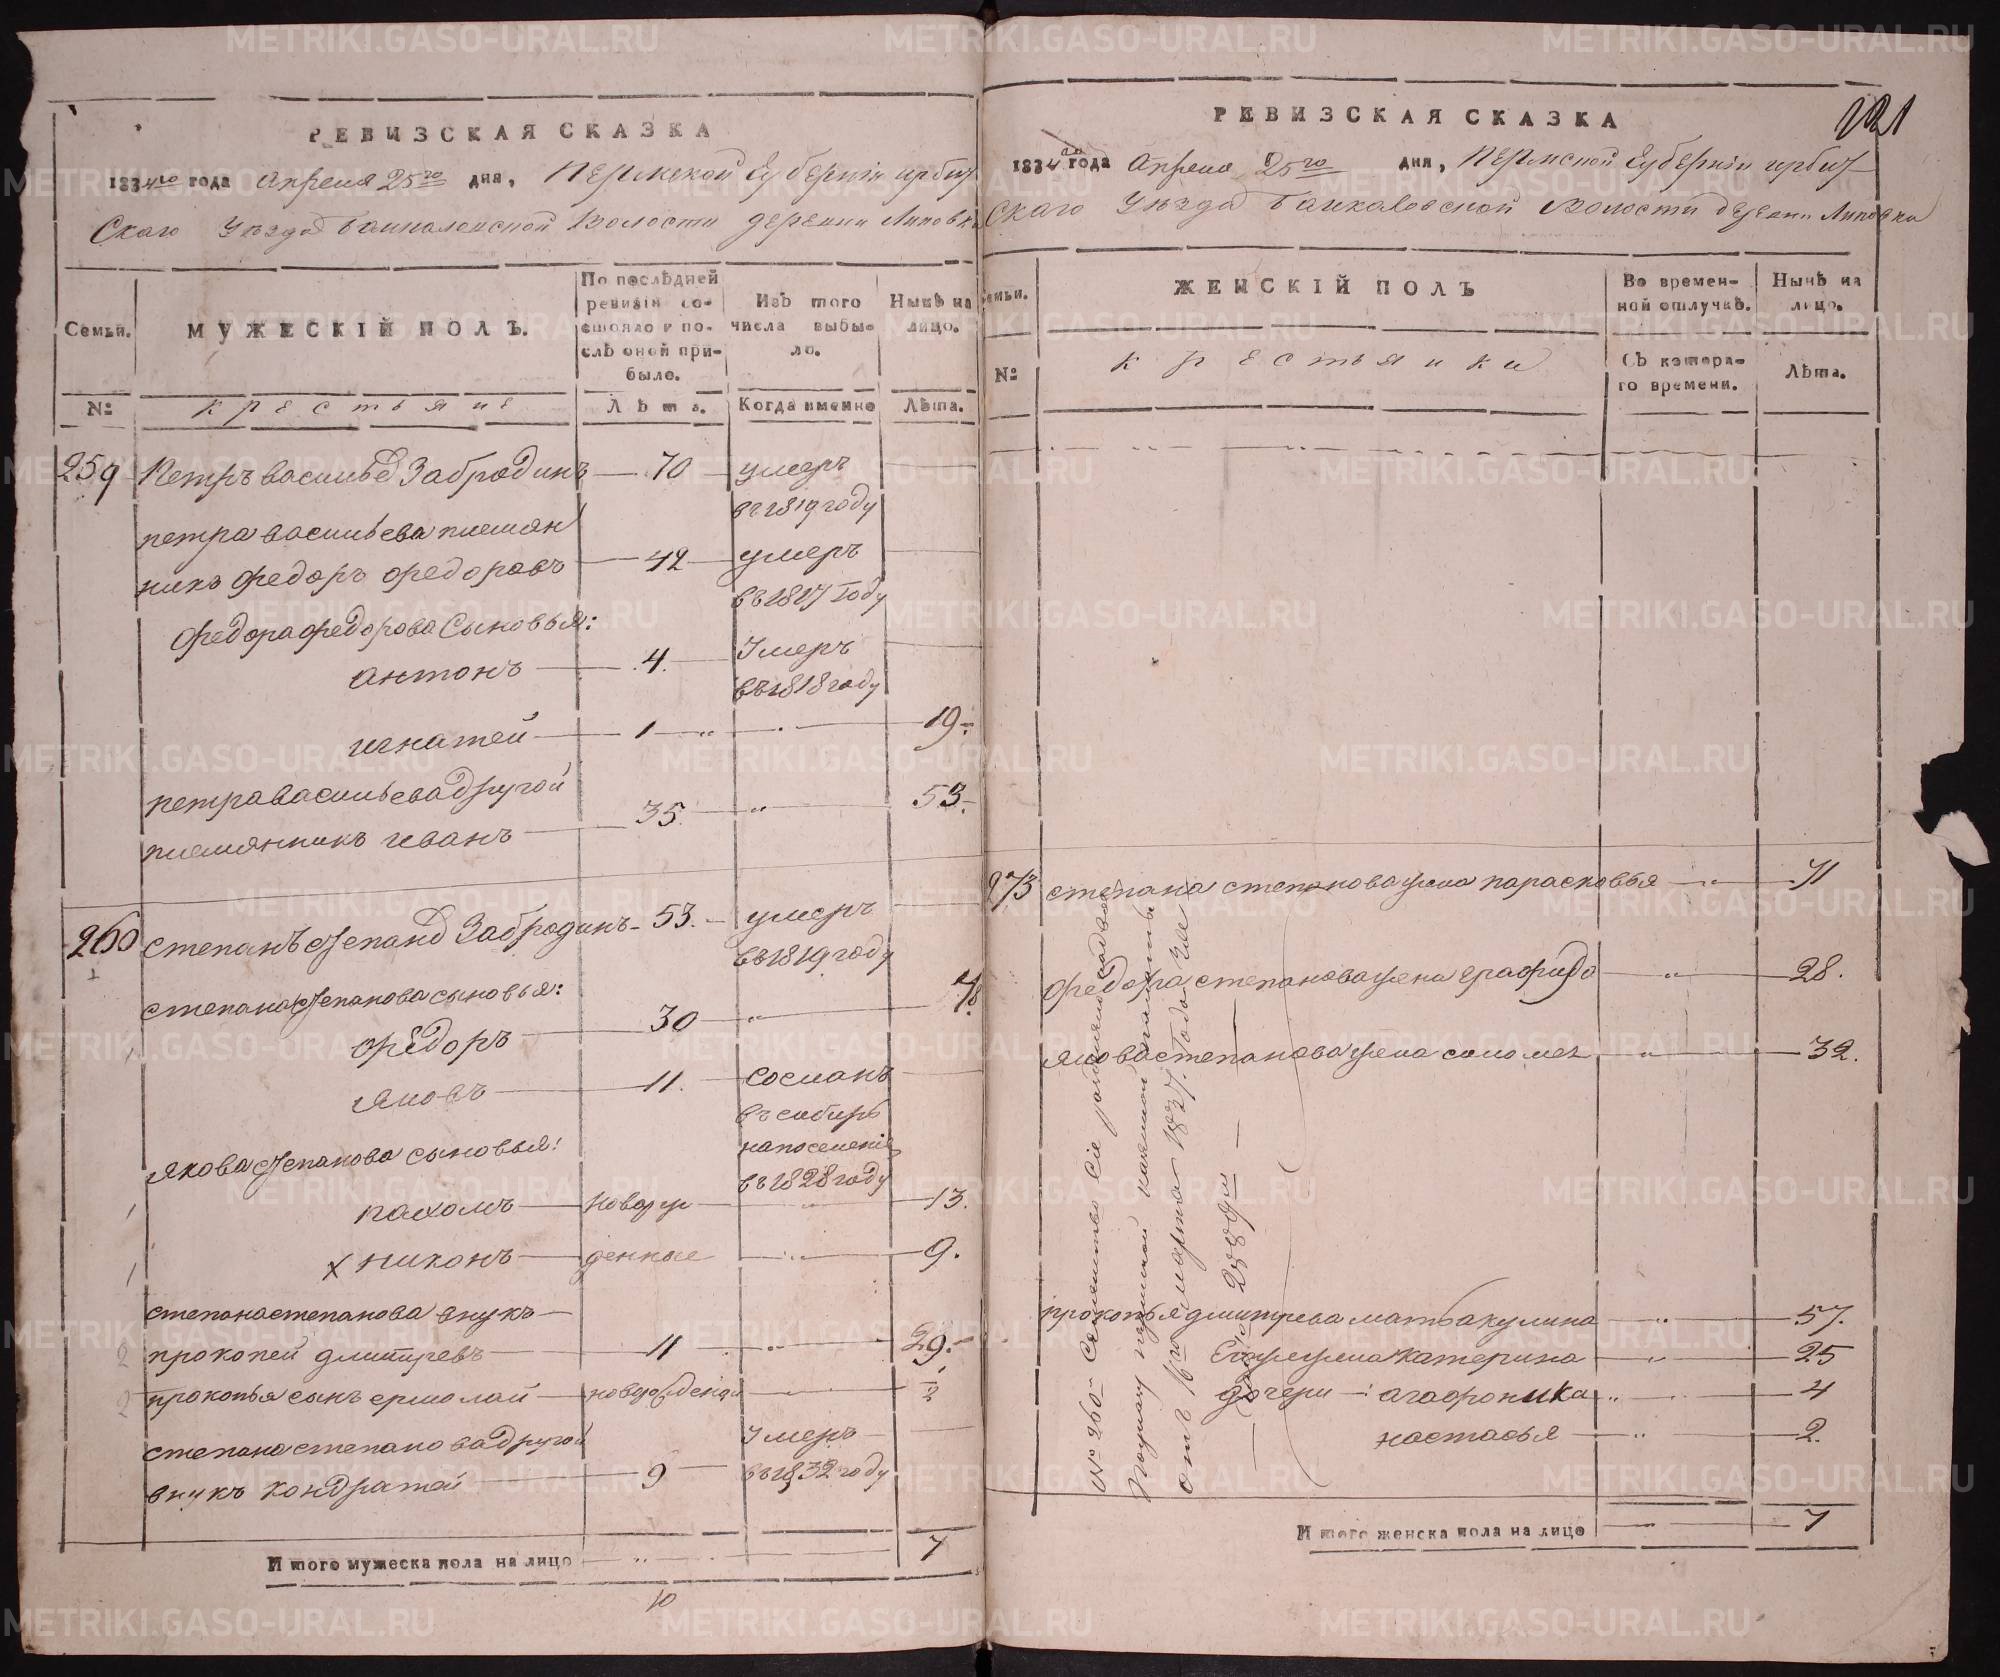 РЕВИЗСКАЯ СКАЗКА
1834го года Апреля 25го дня, Пермской Губернии ирбит
скаго уезда Баикаловской Волости деревни Липовки
Семьи.
МУЖЕСКІЙ ПОЛЪ.
По послѣдней ревизіи состояло и послѣ оной прибыло.
Изъ того числа выбыло.
Нынѣ на лицо.
№
крестьяне
Лѣта.
Когда именно
Лѣта.
259 Петръ васильевъ Забродинъ 70 умеръ
въ 1819 году
петра васильева племян
никъ федоръ федоровъ 42 умеръ
въ 1827 году
федора федорова сыновья:
антонъ 4. Умеръ
въ 1818 году
игнатей 1 19
петра васильева другой
племянникъ иванъ 35 53.
260 степанъ степановъ Забродинъ 53. умеръ
въ 1819 году
степана степанова сыновья:
федоръ 30 48
яковъ 11. сосланъ
въ сибирь
на поселение
въ 1828 году
якова степанова сыновья:
пахомъ новорж 13.
х никонъ денные 9.
степана степанова внукъ
прокопей дмитревъ 11 29.
прокопья сынъ ермолай новорожденои 1/2
степана степанова другой Умеръ
внукъ кондратей 9 въ 1832 году
Итого мужеска пола на лицо 7
10
РЕВИЗСКАЯ СКАЗКА
1834го года Апреля 25го дня, Пермской Губернии ирбит
скаго уезда Баикаловской волости деревни Липовки
Семьи.
ЖЕНСКІЙ ПОЛЪ
Во временной отлучкѣ.
Нынѣ на лицо.
№
крестьянки
Съ котораго времени.
Лѣта.
273 степана степанова жена парасковья 71
федора степанова жена графида 28.
якова степанова жена соломея 32.
прокопья дмитрева мать акулина 57.
Его жена катерина 25
дочери: агафоника 4
настасья 2.
№ 260й Семейство сие
казенной палаты
отъ 16го марта 1827 года
Итого женска пола на лицо 7
METRIKI.GASO-URAL.RU